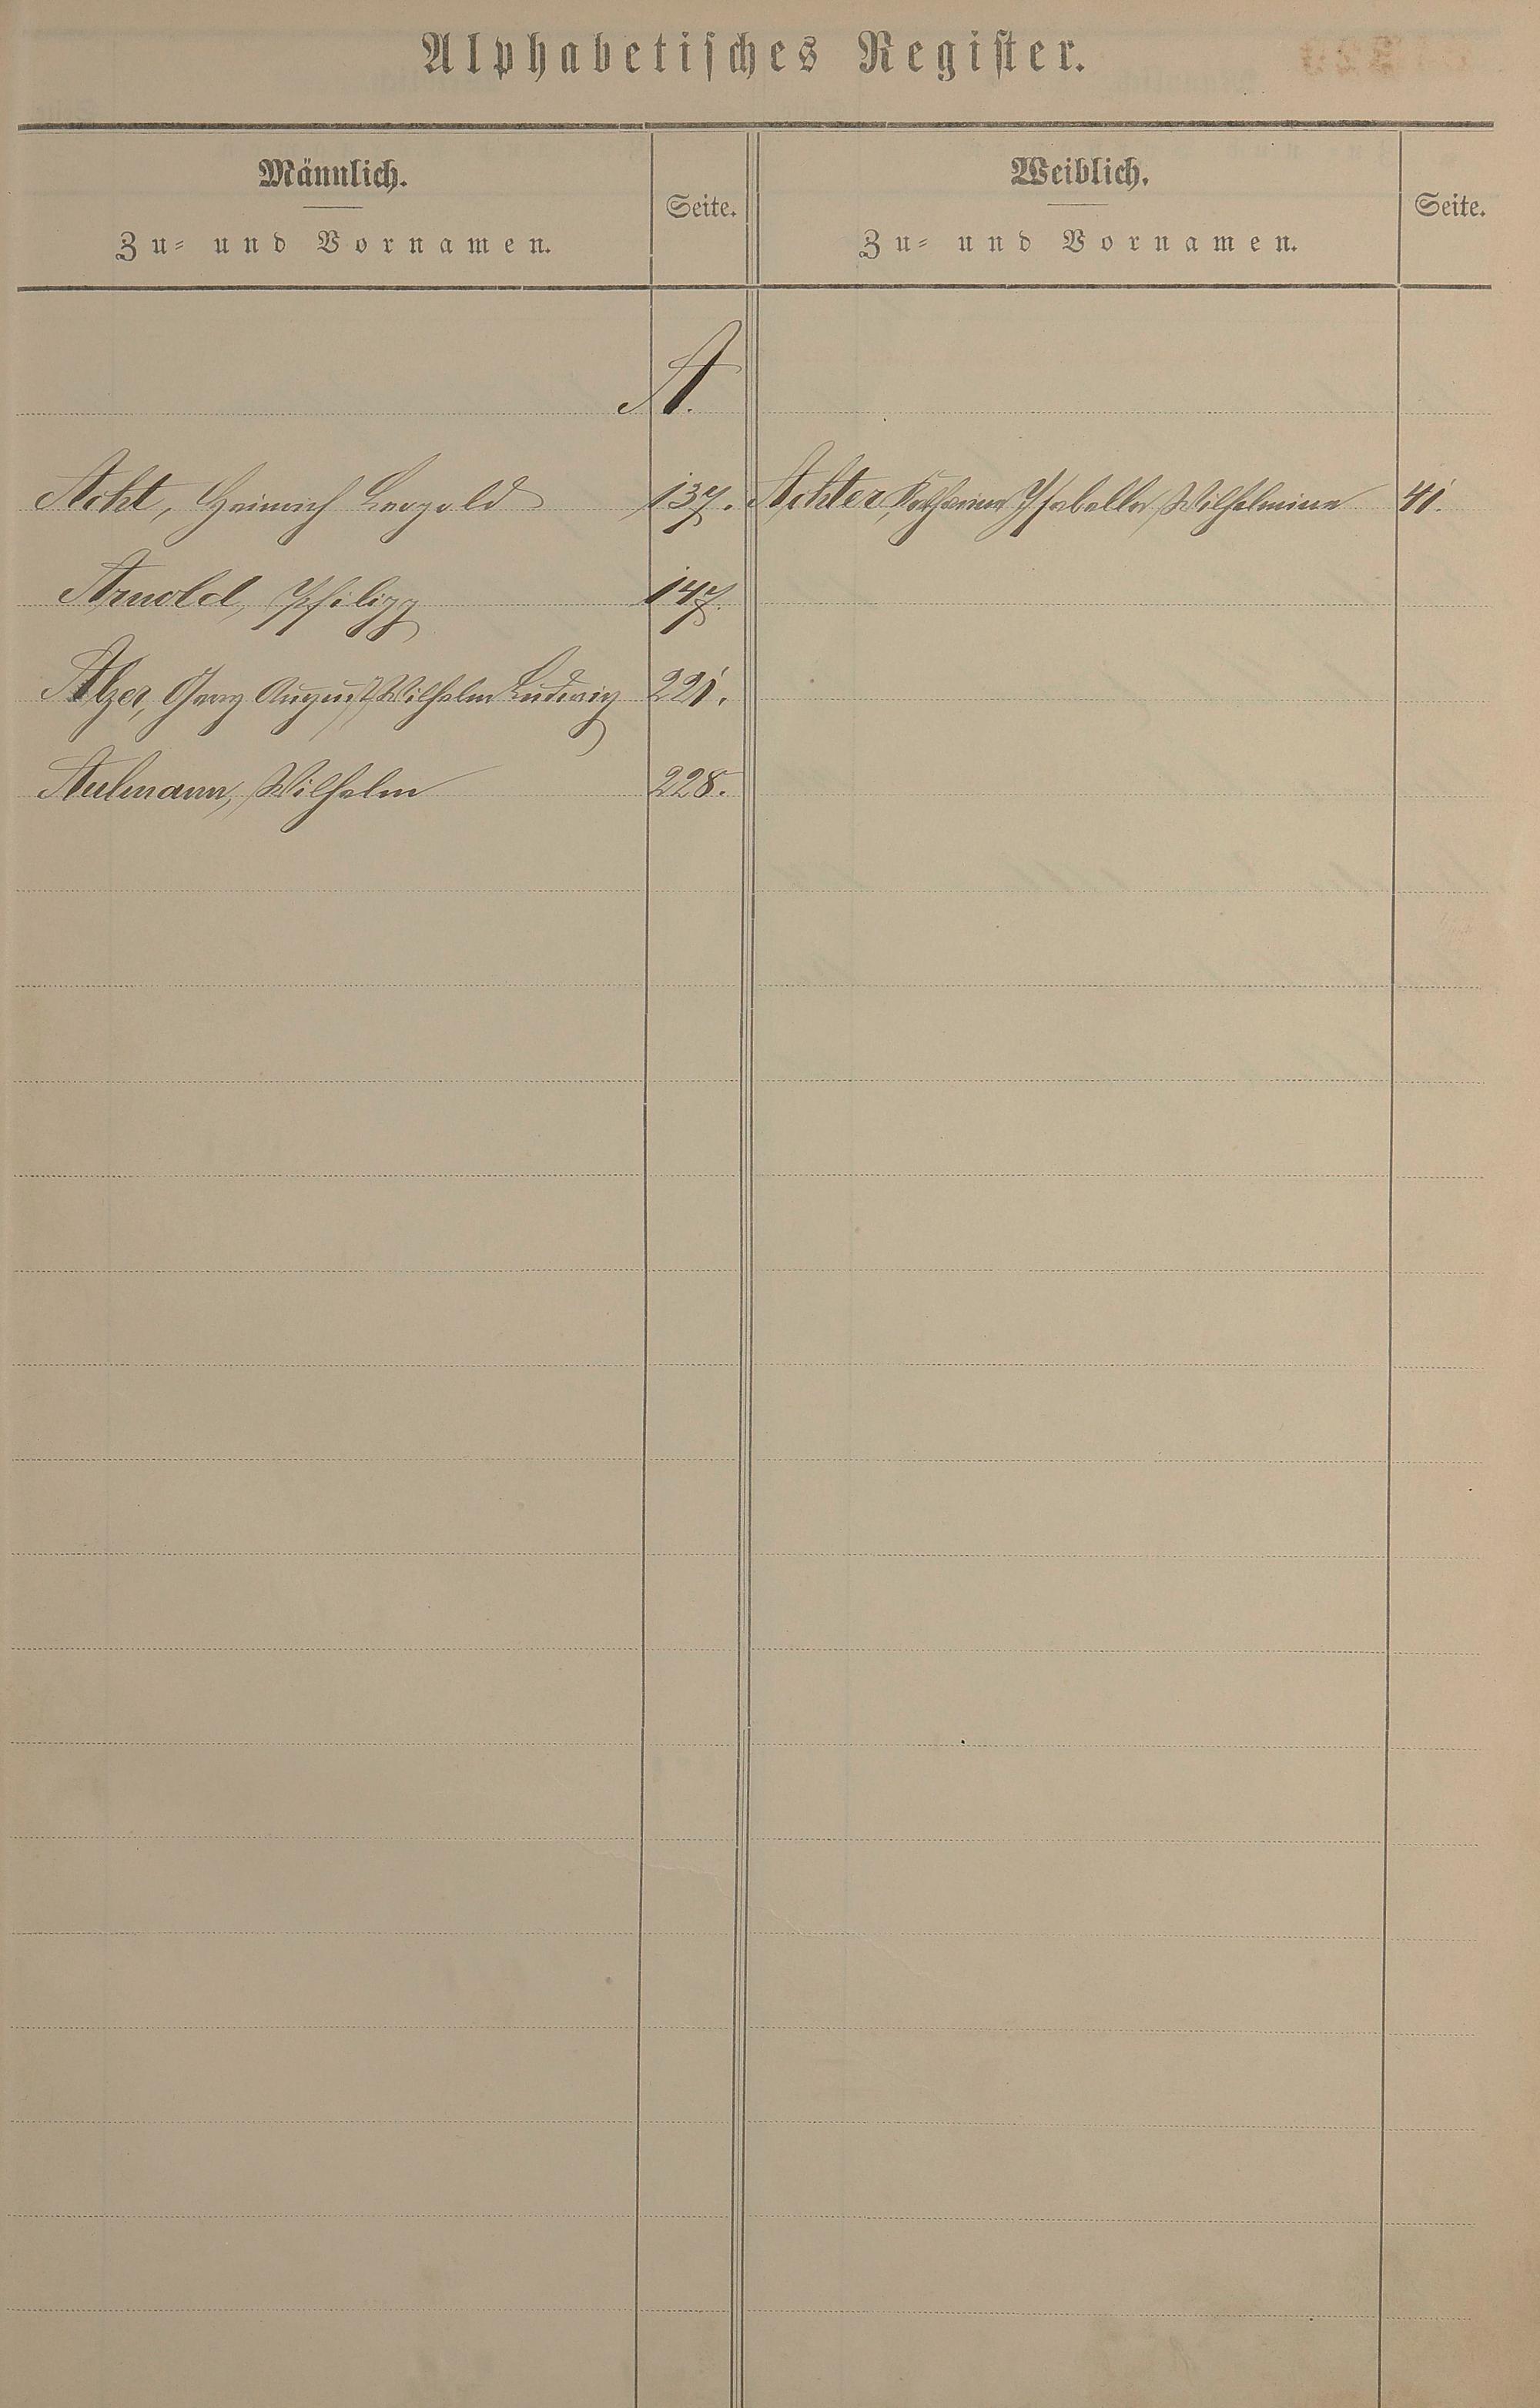 Alphabetisches Register.
Männlich.
Zu- und Vornamen.
Seite.
Weiblich.
Zu- und Vornamen.
Seite.
A.
Acht, Heinrich Leopold 137. Achter, Katharina Ysabella Wilhelmine 41.
Arnold, Philipp 147.
Alzer, Georg August Wilhelm Ludwig 221.
Aulmann, Wilhelm 228.